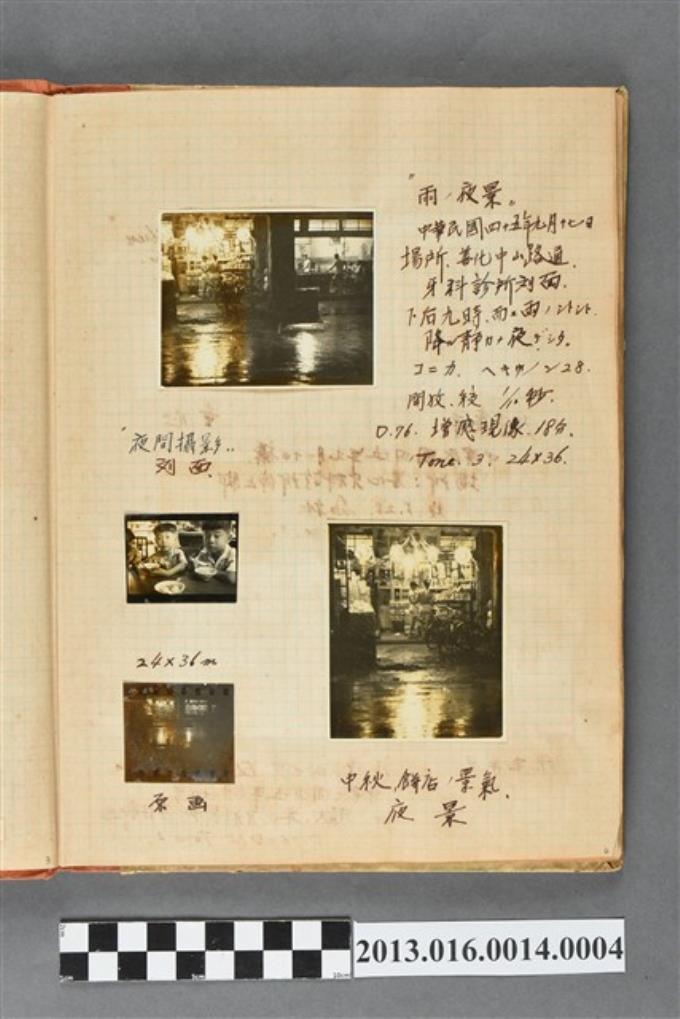 "雨ノ夜景"
中華民國四十五年九月十七日
場所、善化中山路通
牙科診所対面
下后九時、雨
降 静カナ夜デシタ
コニカ ヘキサノン 2.8
開放、絞 1/10秒
D.76. 増感現像 18分
Tone. 3. 24×36.
"夜間攝影"
対面
24×36 m
原画
中秋餅店ノ景氣
夜景
2013.016.0014.0004